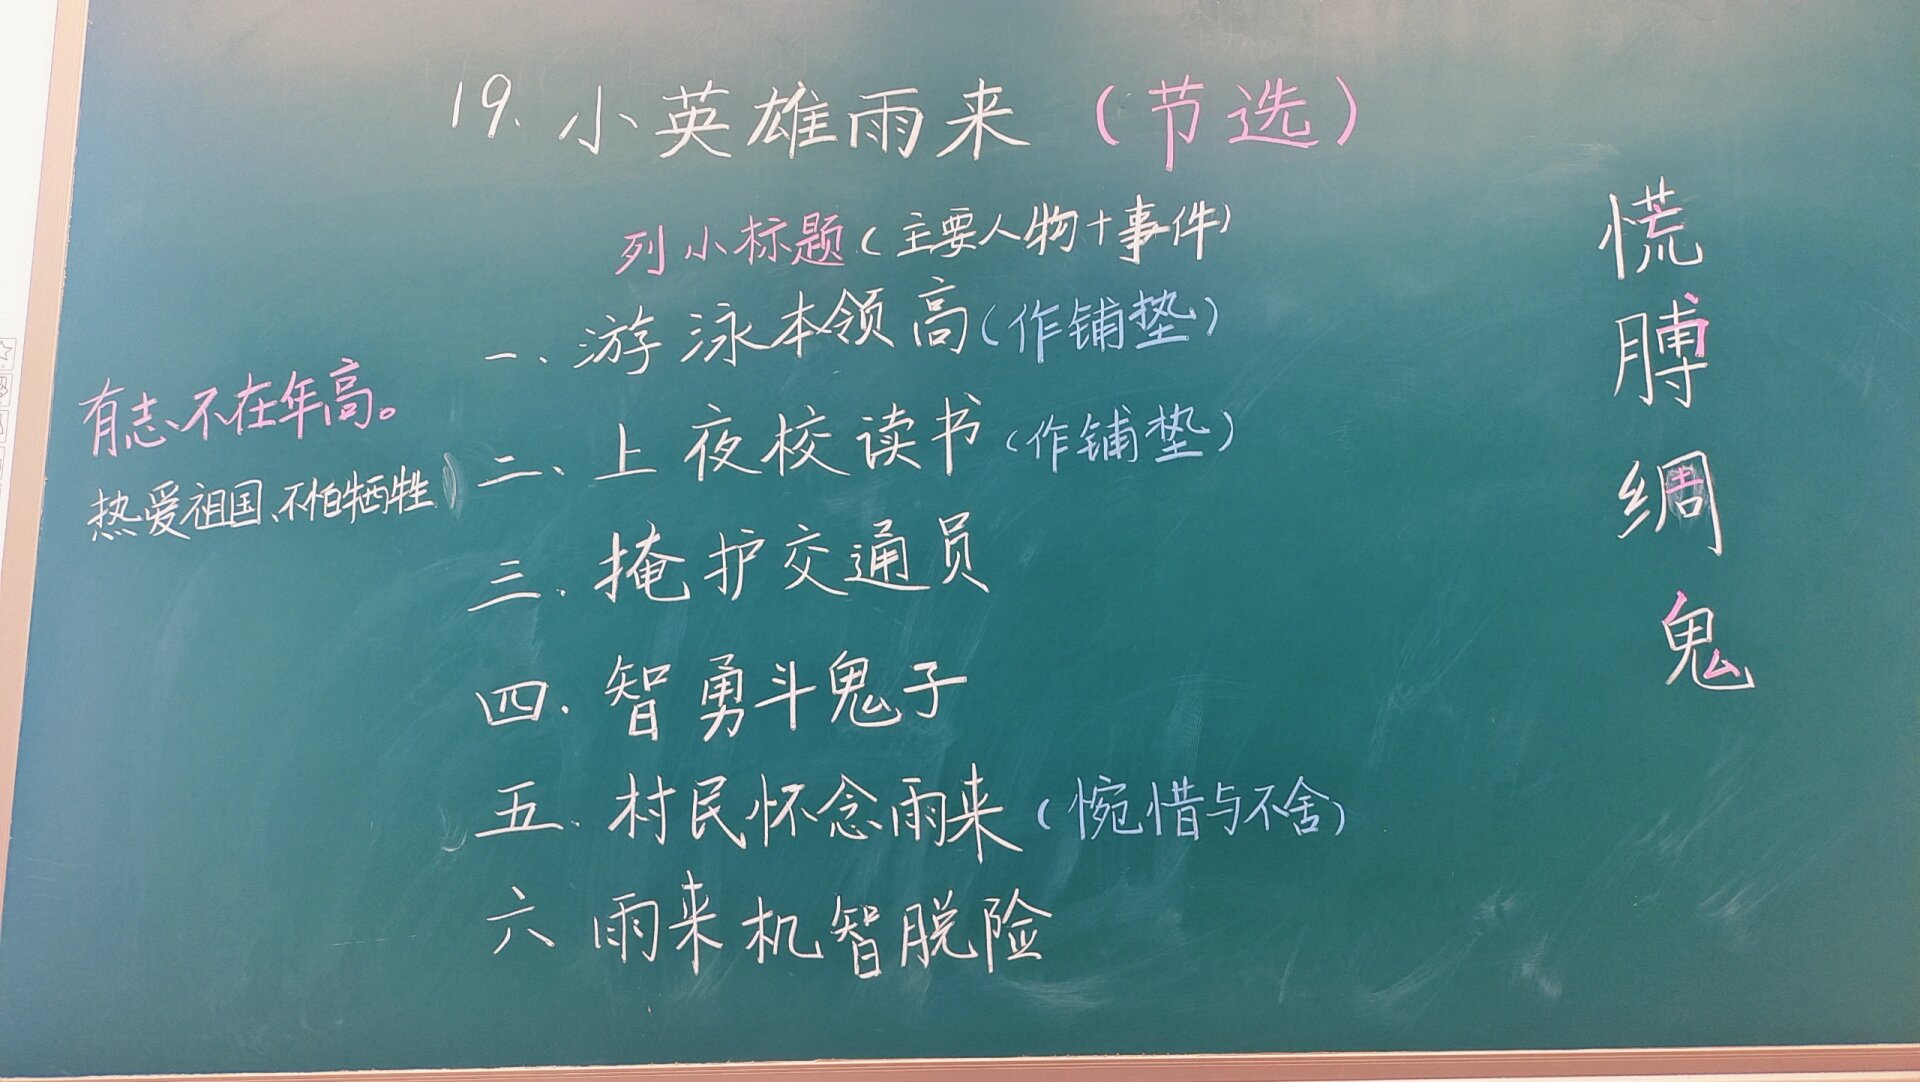 19. 小英雄雨来（节选）
列小标题（主要人物+事件）
一、游泳本领高（作铺垫）
二、上夜校读书（作铺垫）
三.掩护交通员
四.智勇斗鬼子
五.村民怀念雨来（惋惜与不舍）
六 雨来机智脱险
有志不在年高。
热爱祖国、不怕牺牲
慌
膊
绸
鬼